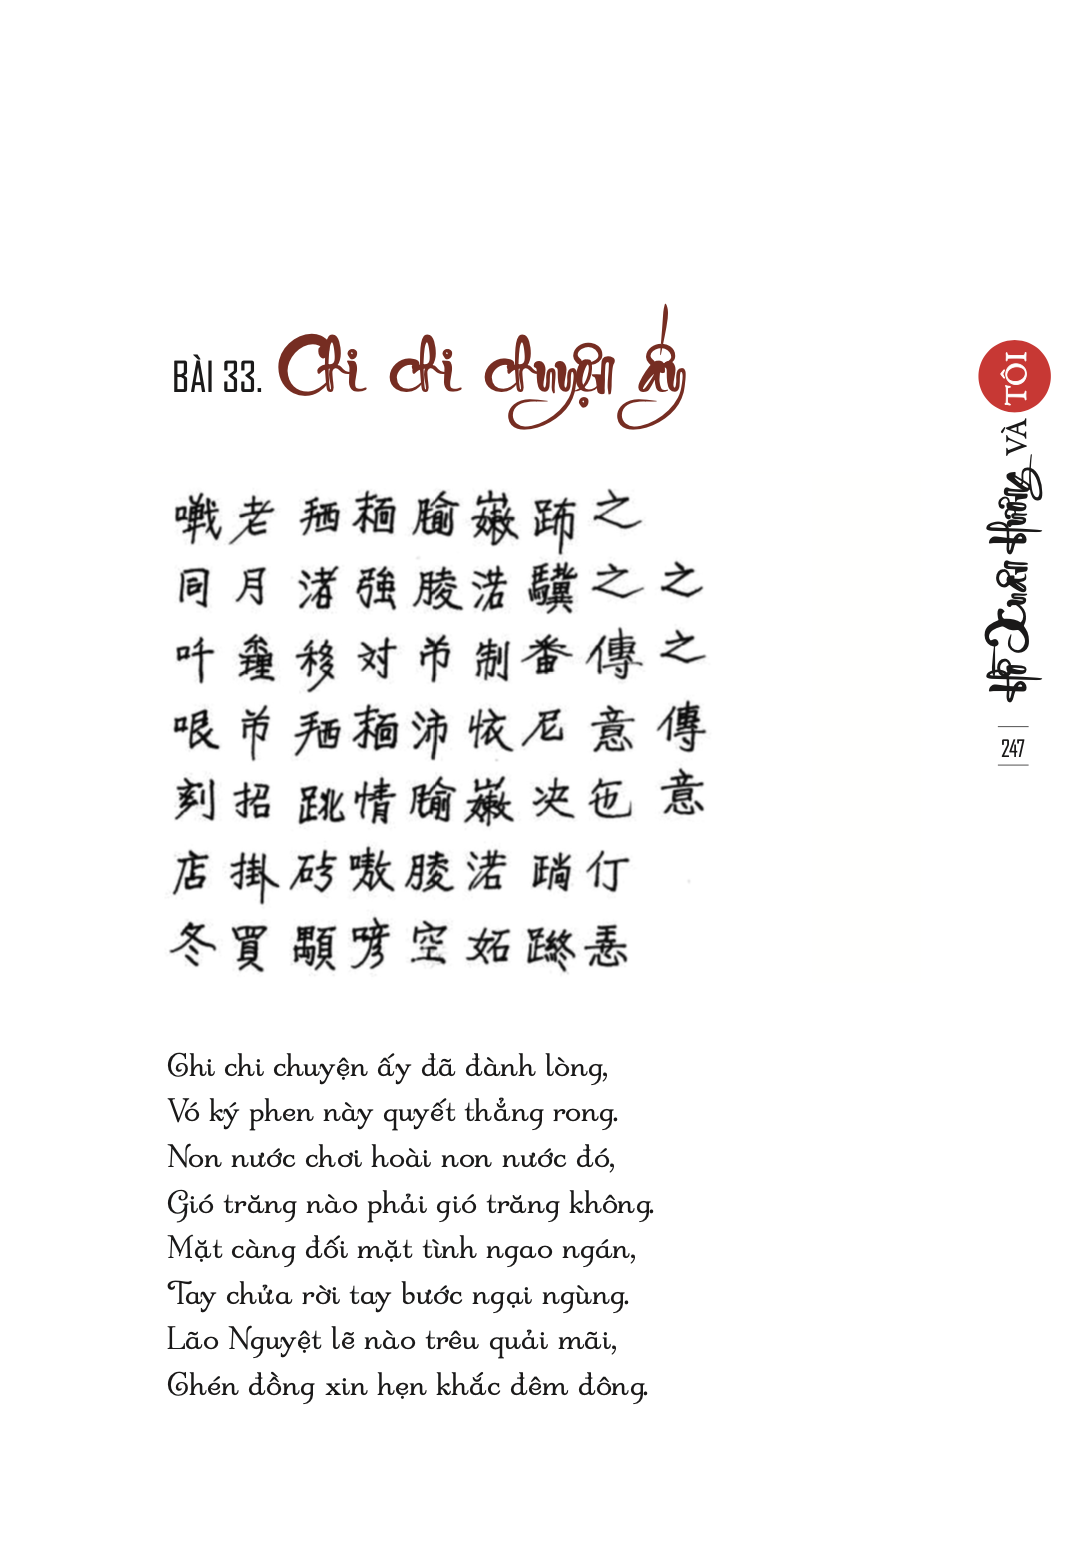 BÀI 33. Chi chi chuyện ấy
之之傳意
之之傳意㐌仃
驥番尼决
渃制渃妬
芇沛空
𩈘強対𩈘情嗷喭
渚移跳顒
老月芇招掛買
同吀哏刻店冬
Chi chi chuyện ấy đã đành lòng,
Vó ký phen này quyết thẳng rong.
Non nước chơi hoài non nước đó,
Gió trăng nào phải gió trăng không.
Mặt càng đối mặt tình ngao ngán,
Tay chửa rời tay bước ngại ngùng.
Lão Nguyệt lẽ nào trêu quải mãi,
Chén đồng xin hẹn khắc đêm đông.
Hồ Xuân Hương VÀ TÔI
247